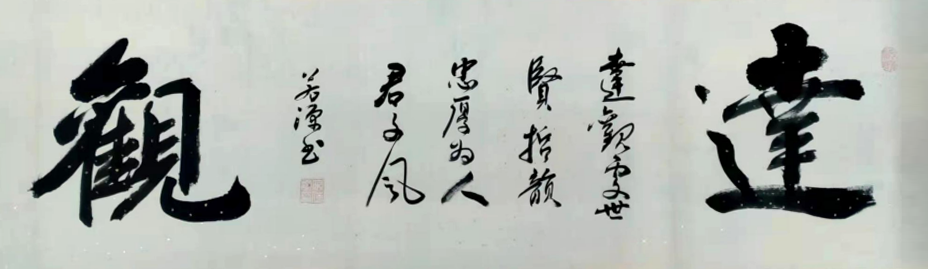 達
達觀處世
賢哲韻
忠厚為人
君子風
若源书
觀